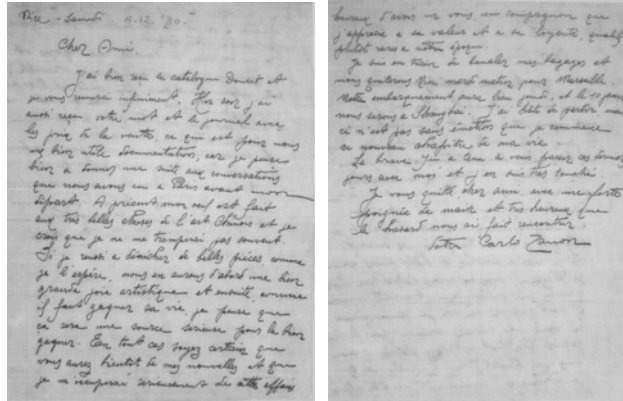 Nice - Samedi 6.12.'30.
Cher Ami.
J'ai bien reçu le catalogue Doucet et
je vous remercie infiniment. Hier soir j'ai
aussi reçu votre mot et le journal avec
les prix de la vente, ce qui est pour nous
une bien utile documentation, car je pense
bien à donner une suite aux conversations
que nous avons eu à Paris avant mon
départ. A présent mon oeil est fait
aux très belles choses de l'art Chinois et je
crois que je ne me tromperai pas souvent.
Si je réussi à dénicher de belles pièces comme
je l'espère, nous en aurons d'abord une bien
grande joie artistique et ensuite, comme
il faut gagner sa vie, je pense que
ça sera une source sérieuse pour la bien
gagner. En tout cas soyez certain que
vous aurez bientôt de mes nouvelles et que
je m'occuperai sérieusement de cette affaire
heureux d'avoir en vous un compagnon que
j'apprécie à sa valeur et à sa loyauté, qualité
plutôt rare à notre époque.
Je suis en train de boucler mes bagages et
nous quitterons Nice mardi matin pour Marseille.
Notre embarquement aura lieu jeudi, et le 10
nous serons à Shanghai. J'ai hâte de partir, mais
ci n'est pas sans émotion que je commence
ce nouveau chapitre de ma vie.
Le brave a tenu à venir passer ces derniers
jours avec moi et j'en suis très touché.
Je vous quitte, cher ami, avec une forte
poignée de main et très heureux que
le hasard nous ai fait rencontrer.
Votre Carlo